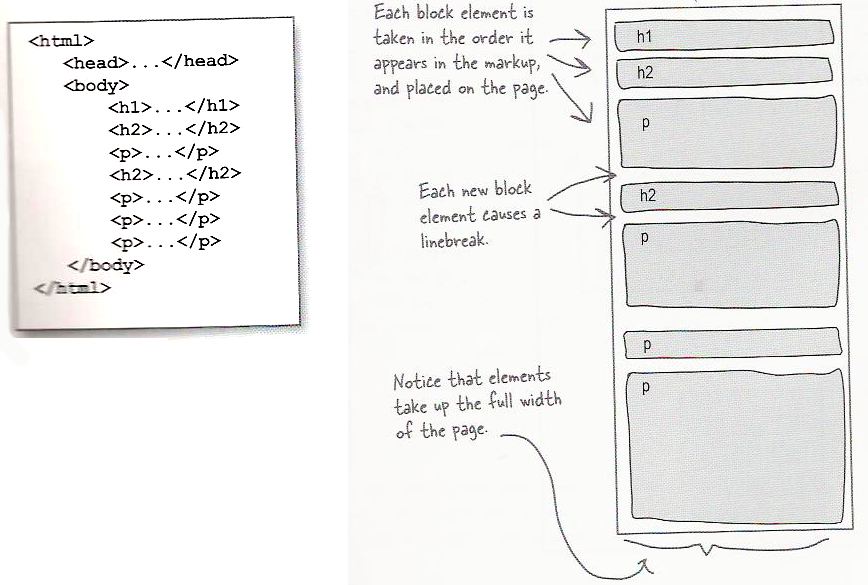 <html>
<head>...</head>
<body>
<h1>...</h1>
<h2>...</h2>
<p>...</p>
<h2>...</h2>
<p>...</p>
<p>...</p>
<p>...</p>
</body>
</html>
Each block element is
taken in the order it
appears in the markup,
and placed on the page.
Each new block
element causes a
linebreak.
Notice that elements
take up the full width
of the page.
h1
h2
p
h2
p
p
p